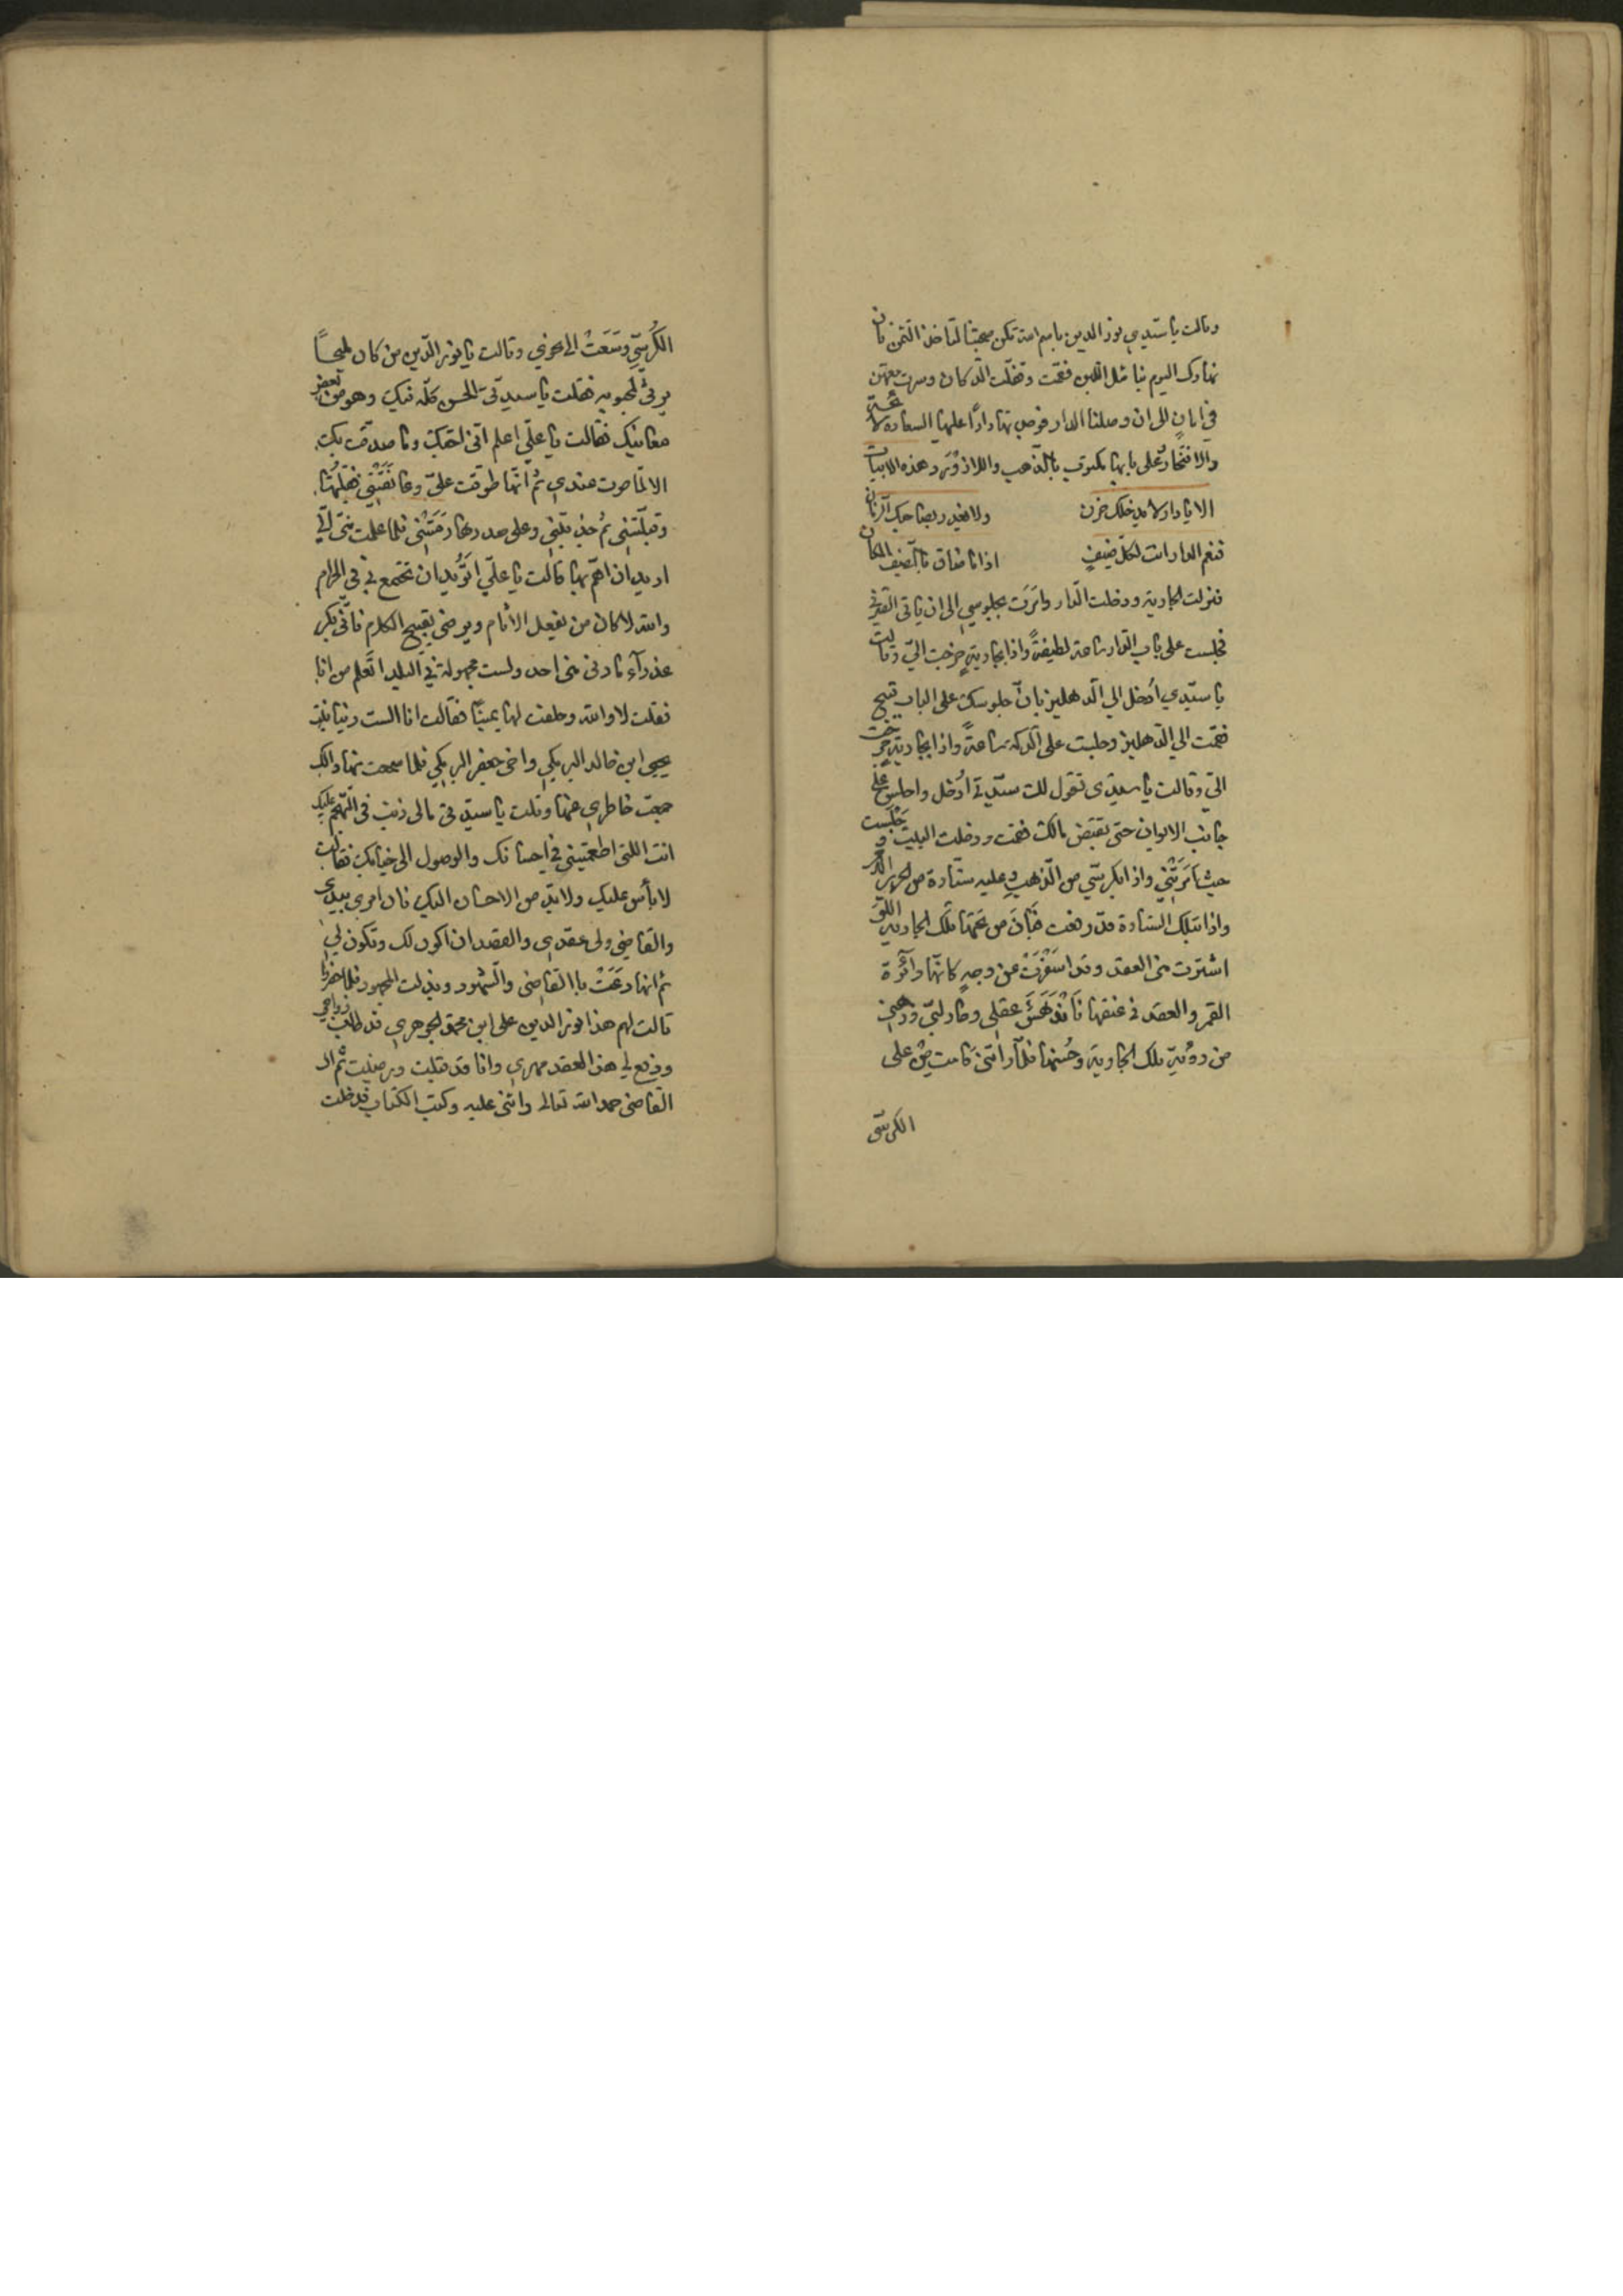 وقالت يا سيدي نور الدين باسم الله تكن صحبتنا لتاخذ الثمن فان
نهارك اليوم مثل اللبن فقمت وقفلت الدكان وسرت معهن
في امان الى ان وصلنا الدار فوجدتها دارًا عليها السعادة لائحة
والافتخار وعلى بابها مكتوب بالذهب واللازورد هذه الابيات
الا يا دار لا يدخلك حزن ولا يغدر بصاحبك الزمان
فنعم الدار انت لكل ضيفٍ اذا ما ضاق بالضيف المكان
فنزلت الجارية ودخلت الدار وامَرَت بجلوسي الى ان ياتي الصيرفي
فجلست على باب الدار ساعة لطيفةً واذا بجاريةٍ خرجت اليّ وقالت
يا سيّدي أدخل الي الدهليز فانّ جلوسك على الباب قبيح
فقمت الي الدهليز وجلست على الدكة ساعةً واذا بجاريةٍ خرجت
اليّ وقالت يا سيدي تقول لك ستّي أدخل واجلس على
جانب الايوان حتى تقبض مالك فقمت ودخلت البيت وجَلَست
حيث أمَرَتْني واذا بكرسيّ من الذهب وعليه ستارة من الحرير
واذا بتلك الستارة قد رفعت فبَانَ من تحتها تلك الجارية اللتي
اشترت مني العقد وقد اسفَرَتْ عن وجهٍ كانّها دائرة
القمر والعقد في عنقها فَانْدَهَشَ عقلي وحار لبّي وذهني
من رؤية تلك الجارية وحُسنها فلمّا رأتني قامت مِنْ على
الكرسيّ
الكُرسيّ وسَعَتْ الى نحوي وقالت يا نور الدّين من كان مليحاً
يرثي لمحبوبه فقلت يا سيدتي الحسن كلّه فيك وهو من بعض
معانيك فقالت يا عليّ إعلم انّي احبّك وما صدّقت بك
الا لمّا صرت عندي ثم انّها طوّقت عليّ وعانَقَتْني فقبّلتُها
وقبّلَتني ثم جذبتني وعلى صدرها رَمَتْني فلما علمت منّي انّي
اريد ان اهمّ بها قالت يا عليّ اتُريد ان تجتمع بي في الحرام
والله لا كان من يفعل الأثام ويرضى بقبيح الكلام فانّي بكر
عذرآء ما دنى مني احد ولست مجهولة في البلد اتَعلم من انا
فقلت لا والله وحلفت لها يمينًا فقالت انا الست دنيا بنت
يحيى ابن خالد البرمكي واخي جعفر البرمكي فلما سمعت منها ذالك
جمعت خاطري عنها وقلت يا سيدتي مالي ذنب في التهجم عليك
انت اللتي اطمعتيني في احسانك والوصول الى جنابك فقالت
لا بأس عليك ولا بدّ من الاحسان اليك فان امري بيدي
والقاضي ولي عقدي والقصد ان اكون لك وتكون لي
ثم انها دعَتْ باالقاضي والشهود وبذلت المجهود فلما حضروا
قالت لهم هذا نور الدين علي ابن محمد الجوهري قد طلب زواجي
ودفع لي هذا العقد مهري وانا قد قبلت ورضيت ثم ان
القاضي حمد الله تعالى واثنى عليه وكتب الكتاب فدخلت